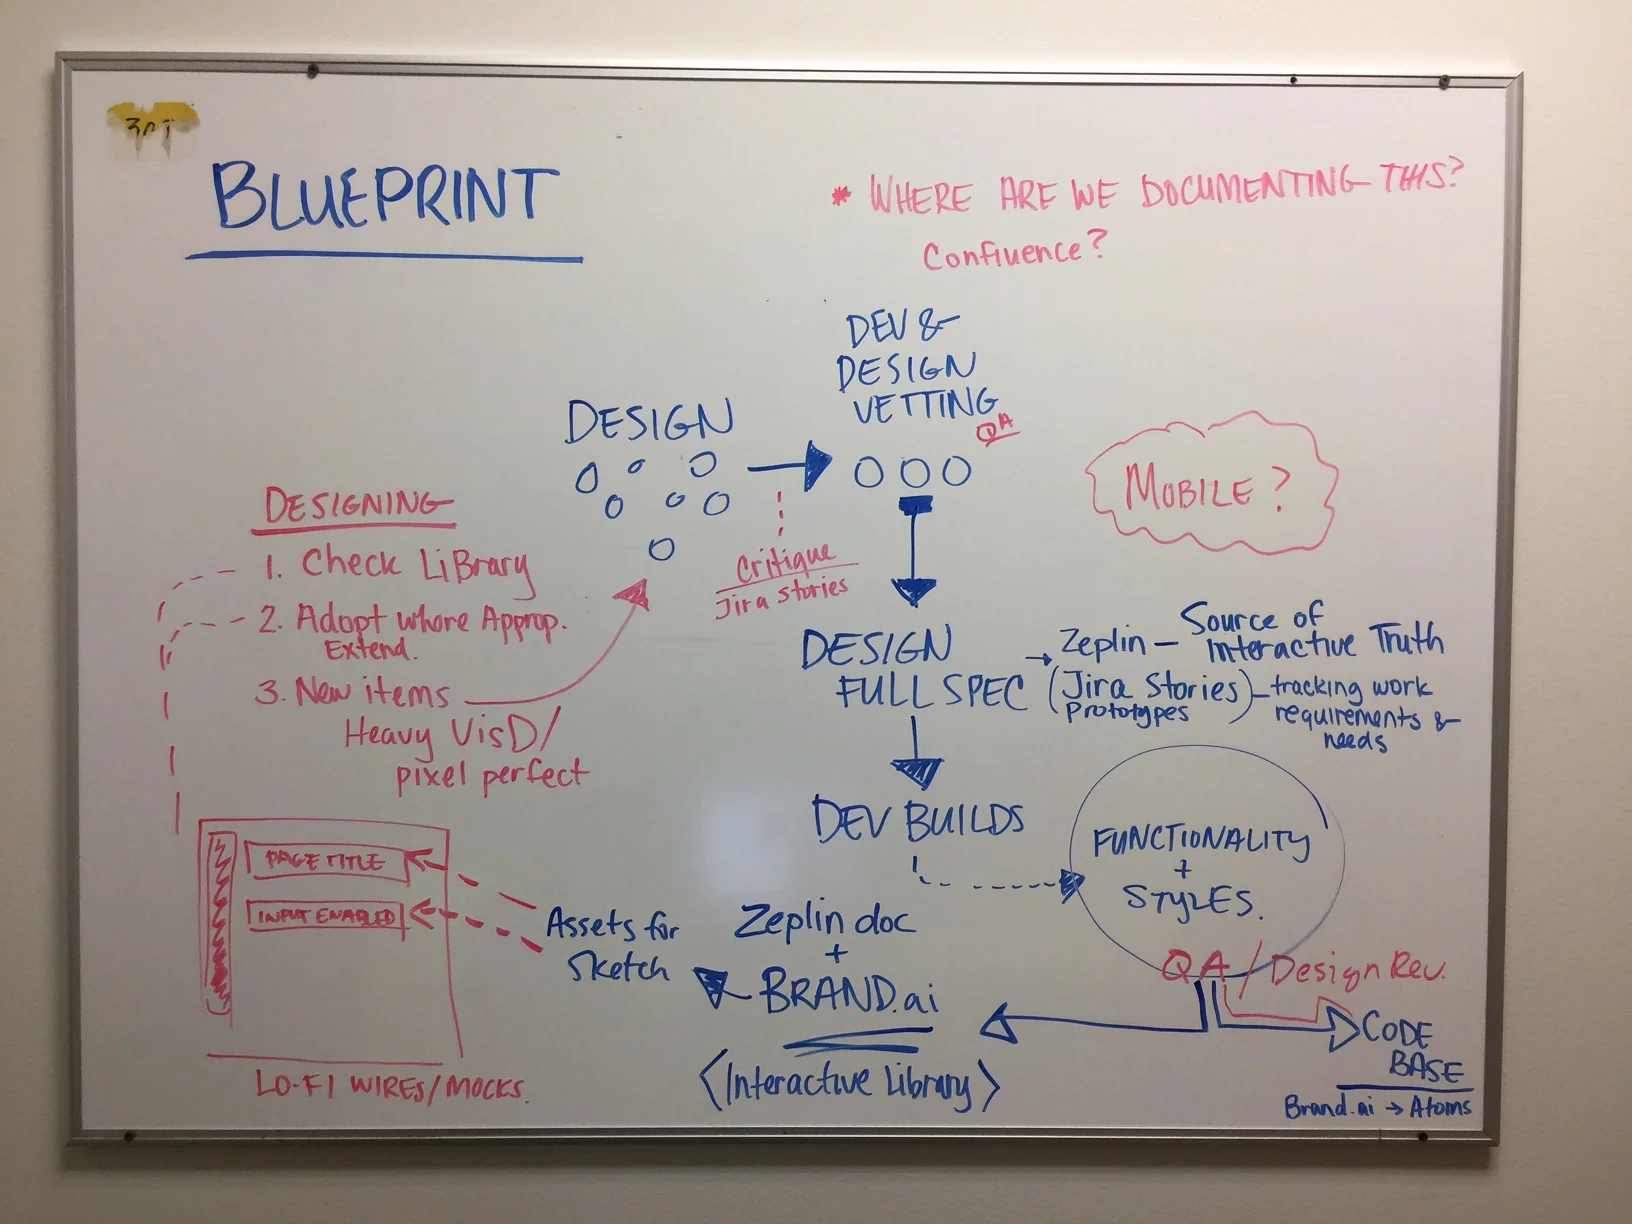 BLUEPRINT
* WHERE ARE WE DOCUMENTING THIS?
Confluence?
DEV &
DESIGN
VETTING
QA
DESIGN
MOBILE?
DESIGNING
1. Check LiBrary
2. Adopt where Approp.
Extend.
3. New items
Heavy VisD/
pixel perfect
Critique
Jira Stories
DESIGN
FULL SPEC
Zeplin – Source of
Interactive Truth
(Jira Stories) – tracking work
Prototypes
requirements &
needs
DEV BUILDS
FUNCTIONALITY
+
STYLES.
QA / Design Rev.
CODE
BASE
Brand.ai → Atoms
Zeplin doc
+
BRAND.ai
<Interactive Library>
Assets for
Sketch
PAGE TITLE
INPUT ENABLED
LO-FI WIRES/MOCKS.